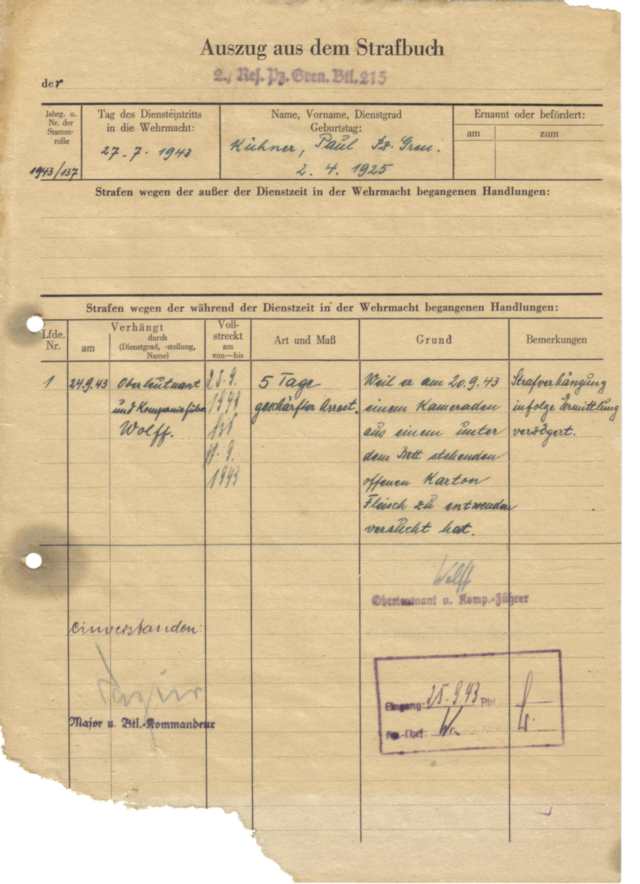 Auszug aus dem Strafbuch
der
2./ Res. Pz. Gren. Btl. 215
Jahrg. u. Nr. der Stammrolle
1943/137
Tag des Diensteintritts
in die Wehrmacht:
27. 7. 1943
Name, Vorname, Dienstgrad
Geburtstag:
Kühner, Paul Pz. Gren.
2. 4. 1925
Ernannt oder befördert:
am
zum
Strafen wegen der außer der Dienstzeit in der Wehrmacht begangenen Handlungen:
Strafen wegen der während der Dienstzeit in der Wehrmacht begangenen Handlungen:
Lfde. Nr.
Verhängt
am
durch
(Dienstgrad, -stellung, Name)
Vollstreckt
am
von—bis
Art und Maß
Grund
Bemerkungen
1
24.9.43
Oberleutnant
und Kompanieführer
Wolff.
25. 9.
1943
bis
9.
1943
5 Tage
geschärften Arrest.
Weil er am 20.9.43
einem Kameraden
aus einem unter
dem Bett stehenden
offenen Karton
Fleisch zu entwenden
versucht hat.
Strafverhängung
infolge Ermittlung
verzögert.
Wolff
Oberleutnant u. Komp.-Führer
einverstanden
Major u. Btl.-Kommandeur
Eingang: 25.9.43